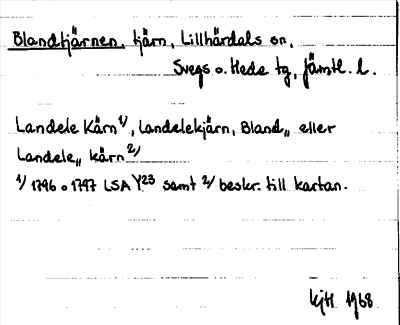 Blandtjärnen, tjärn, Lillhärdals sn,
Svegs o. Hede tg, Jämtl. l.
Landele Kärn 1/, Landelekjärn, Bland„ eller
Landele„ kärn 2/
1/ 1796 o 1797 LSA Y23 samt 2/ beskr. till kartan.
KjH 1968